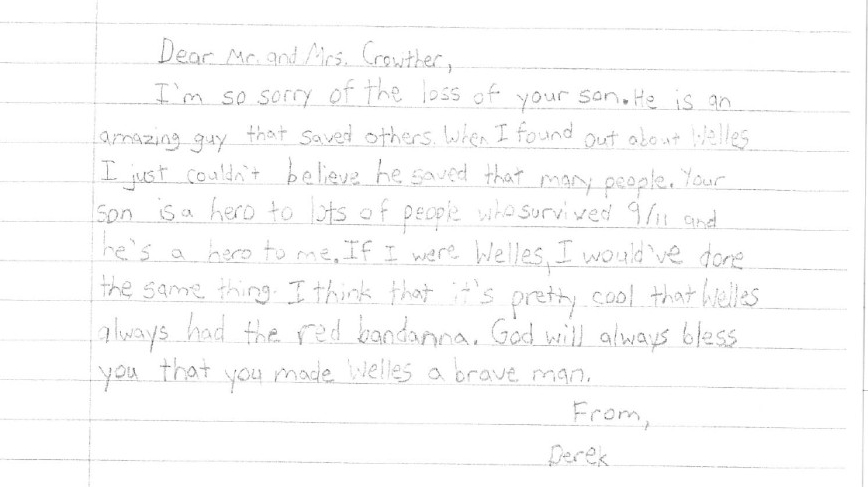 Dear Mr. and Mrs. Crowther,
I'm so sorry of the loss of your son. He is an
amazing guy that saved others. When I found out about Welles
I just couldn't believe he saved that many people. Your
son is a hero to lots of people who survived 9/11 and
he's a hero to me. If I were Welles, I would've done
the same thing. I think that it's pretty cool that Welles
always had the red bandanna. God will always bless
you that you made Welles a brave man.
From,
Derek